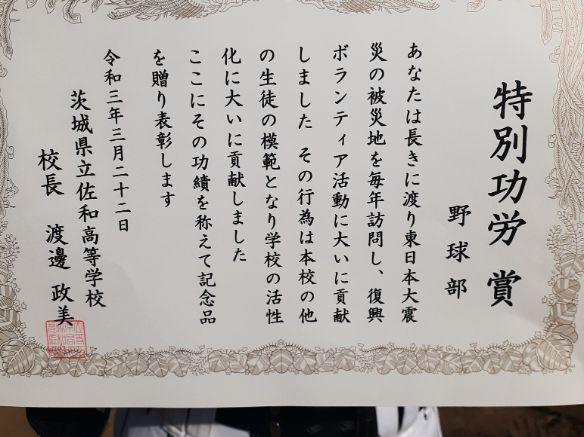 特別功労賞
野球部
あなたは長きに渡り東日本大震
災の被災地を毎年訪問し、復興
ボランティア活動に大いに貢献
しました その行為は本校の他
の生徒の模範となり学校の活性
化に大いに貢献しました
ここにその功績を称えて記念品
を贈り表彰します
令和三年三月二十二日
茨城県立佐和高等学校
校長 渡邊 政美